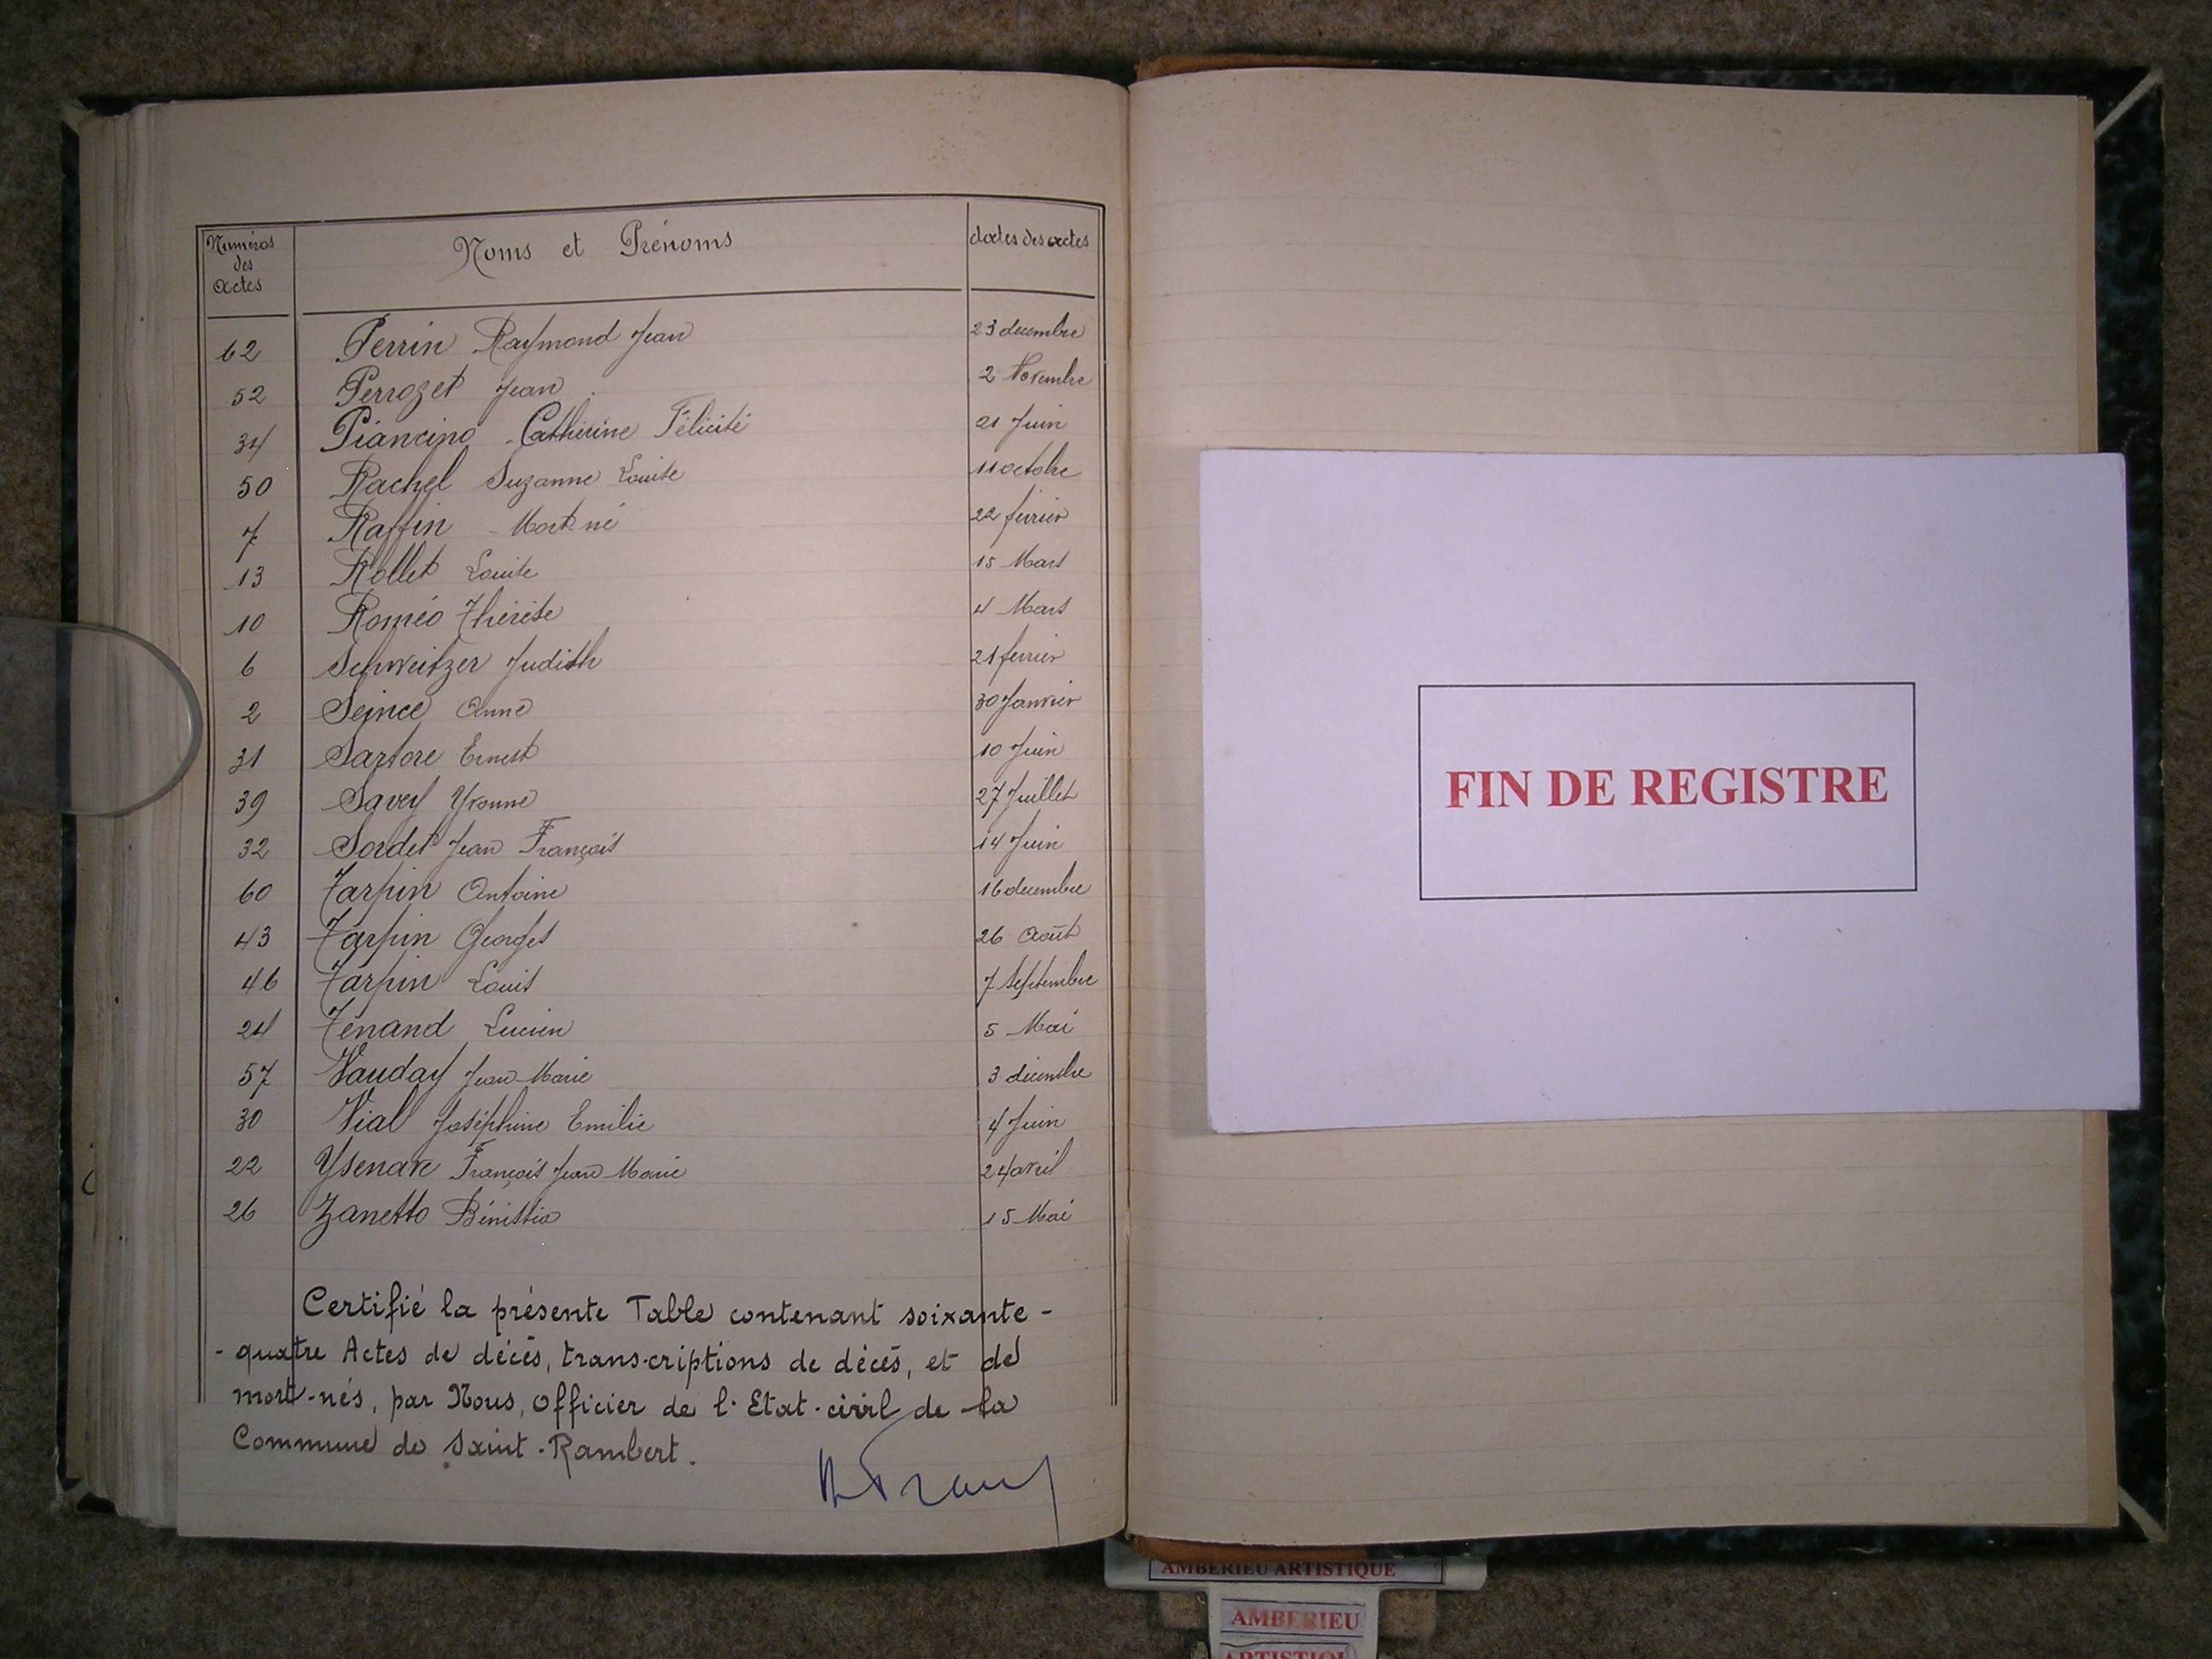 Numéros des Actes Noms et Prénoms dates des actes
62 Perrin Raymond Jean 23 decembre
52 Perrozet Jean 2 Novembre
34 Piancino Catherine Félicité 21 Juin
50 Rachel Suzanne Louise 11 octobre
7 Raffin Mort-né 22 février
13 Rollet Louise 15 Mars
10 Roméo Thérèse 4 Mars
6 Schweitzer Judith 21 février
2 Seince Anne 30 Janvier
31 Sartore Ernest 10 Juin
39 Savey Yvonne 27 Juillet
32 Sordet Jean François 14 Juin
60 Tarpin Antoine 16 decembre
43 Tarpin Georges 26 Août
46 Tarpin Louis 7 Septembre
24 Tenand Lucien 5 Mai
57 Vauday Jean Marie 3 décembre
30 Vial Joséphine Emilie 4 Juin
22 Ysenave François Jean Marie 24 avril
26 Zanetto 15 Mai
Certifié la présente Table contenant soixante-
-quatre Actes de décès, transcriptions de décès, et de
mort-nés, par Nous, Officier de l'Etat-civil de la
Commune de Saint-Rambert.
FIN DE REGISTRE
AMBERIEU ARTISTIQUE
AMBERIEU